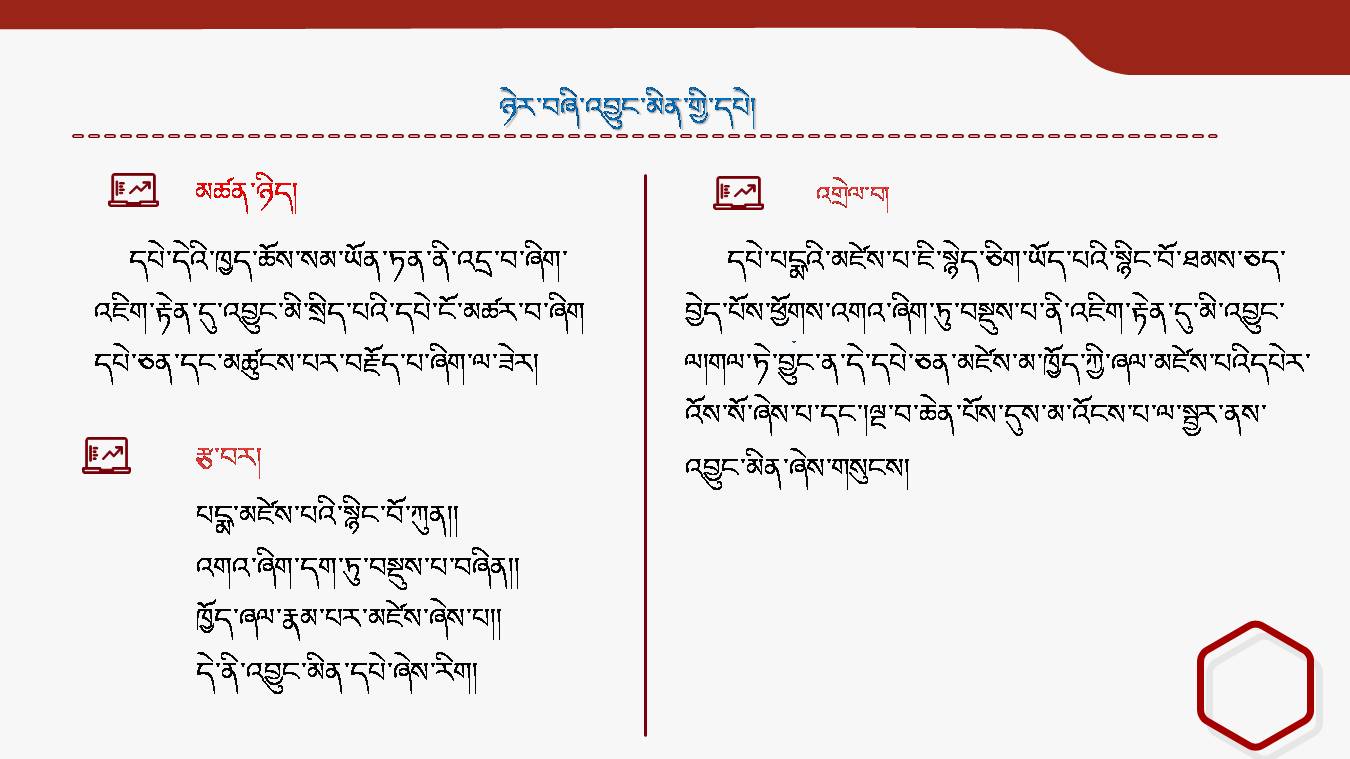 ཉེར་བཞི་འབྱུང་མིན་གྱི་དཔེ།
མཚན་ཉིད།
དཔེ་དེའི་ཁྱད་ཆོས་སམ་ཡོན་ཏན་ནི་འདྲ་བ་ཞིག་
འཇིག་རྟེན་དུ་འབྱུང་མི་སྲིད་པའི་དཔེ་ངོ་མཚར་བ་ཞིག
དཔེ་ཅན་དང་མཚུངས་པར་བརྗོད་པ་ཞིག་ལ་ཟེར།
རྩ་བར།
པདྨ་མཛེས་པའི་སྙིང་བོ་ཀུན།།
འགའ་ཞིག་དག་ཏུ་བསྡུས་པ་བཞིན།།
ཁྱོད་ཞལ་རྣམ་པར་མཛེས་ཞེས་པ།།
དེ་ནི་འབྱུང་མིན་དཔེ་ཞེས་རིག།
འགྲེལ་བ།
དཔེ་པདྨའི་མཛེས་པ་ཇི་སྙེད་ཅིག་ཡོད་པའི་སྙིང་བོ་ཐམས་ཅད་
བྱེད་པོས་ཕྱོགས་འགའ་ཞིག་ཏུ་བསྡུས་པ་ནི་འཇིག་རྟེན་དུ་མི་འབྱུང་
ལ།གལ་ཏེ་བྱུང་ན་དེ་དཔེ་ཅན་མཛེས་མ་ཁྱོད་ཀྱི་ཞལ་མཛེས་པའིདཔེར་
འོས་སོ་ཞེས་པ་དང་།ལྔ་བ་ཆེན་པོས་དུས་མ་འོངས་པ་ལ་སྦྱར་ནས་
འབྱུང་མིན་ཞེས་གསུངས།